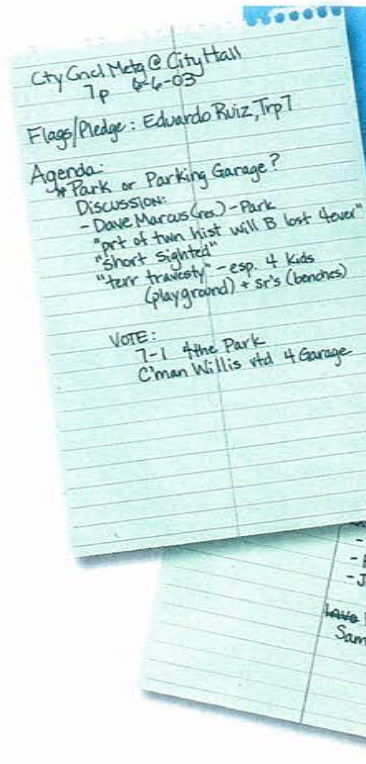 Cty Cncl Metg @ City Hall
7p 6-6-03
Flags/Pledge: Eduardo Ruiz, Trp 7
Agenda:
* Park or Parking Garage?
Discussion:
- Dave Marcus (res.) - Park
"prt of twn hist will B lost 4ever"
"short sighted"
"terr travesty" - esp. 4 kids
(playground) + sr's (benches)
VOTE:
7-1 4the Park
C'man Willis vtd 4 Garage
Sam